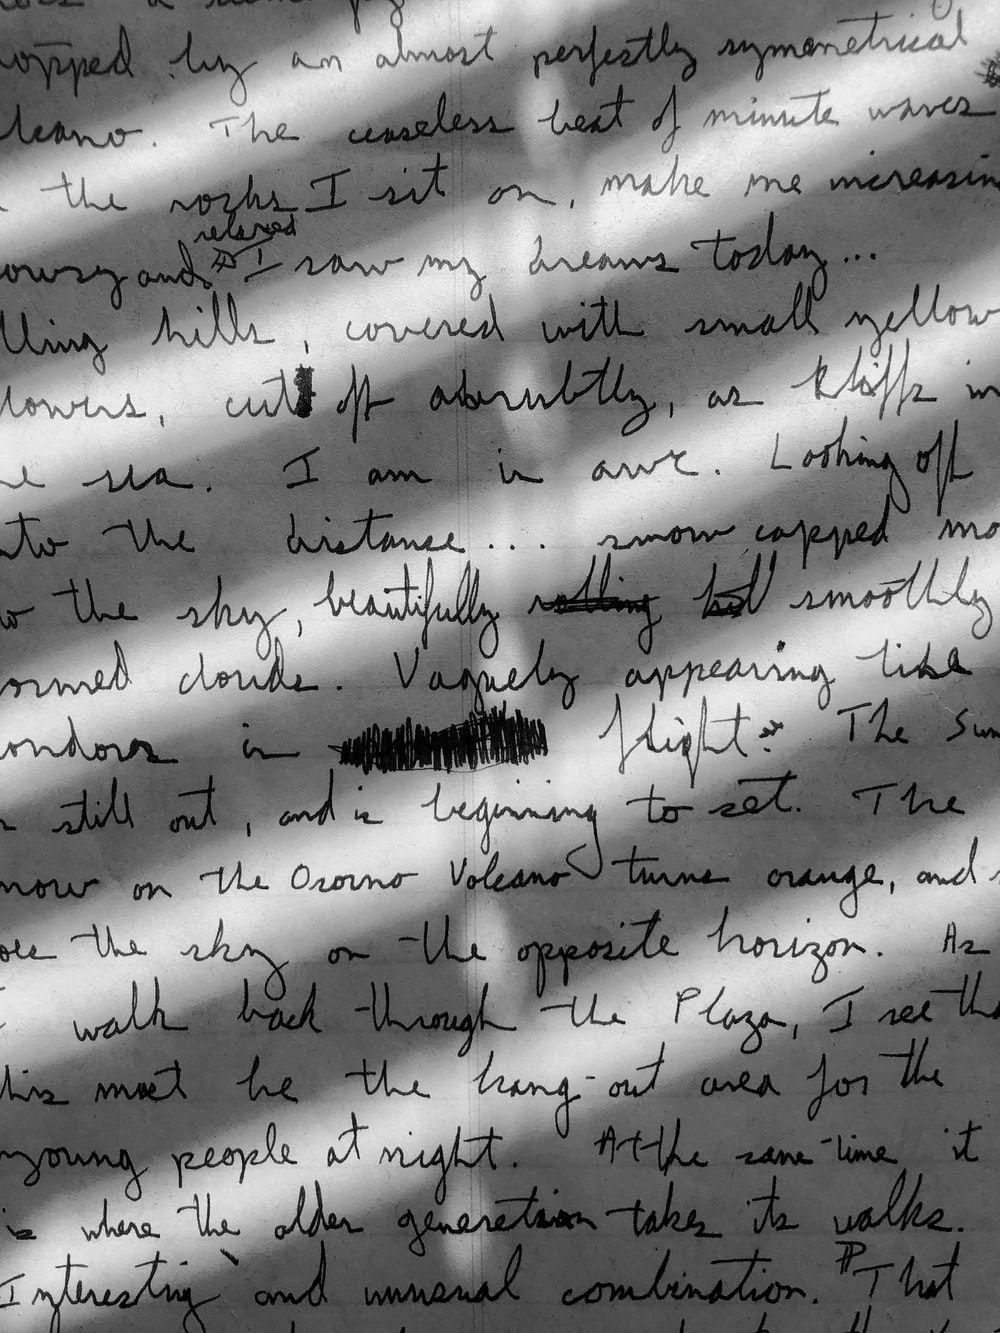 topped by an almost perfectly symmetrical
lcano. The ceaseless beat of minute waves
the rocks I sit on, make me increasin
relaxed
owsy and I saw my dreams today...
lling hills, covered with small yellow
lowers, cut off abrubtly, as kliffs in
e sea. I am in awe. Looking off
nto the distance... snow capped mo
o the sky, beautifully rolling but smoothly
ormed clouds. Vaguely appearing like
ondors in flight. The Sun
s still out, and is beginning to set. The
now on the Osorno Volcano turns orange, and s
oes the sky on the opposite horizon. As
I walk back through the Plaza, I see tha
his must be the hang-out area for the
young people at night. At the same-time it
is where the older generation takes its walks.
Interesting and unusual combination. That